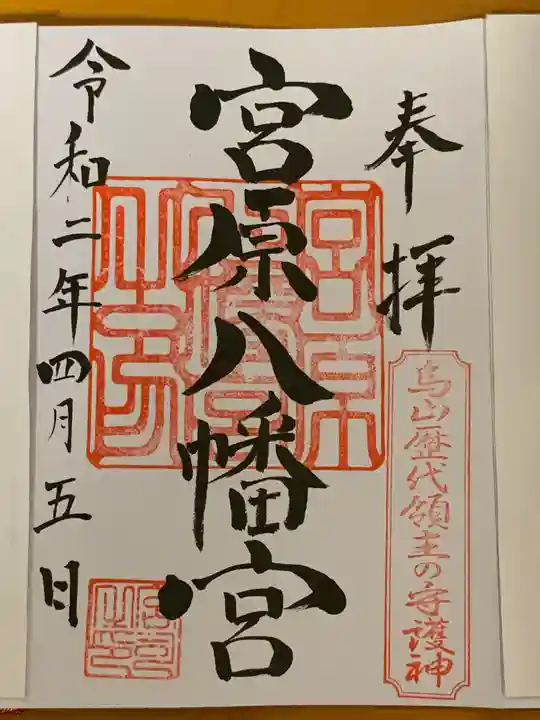 奉拝
烏山歴代領主の守護神
宮原八幡宮
令和二年四月五日